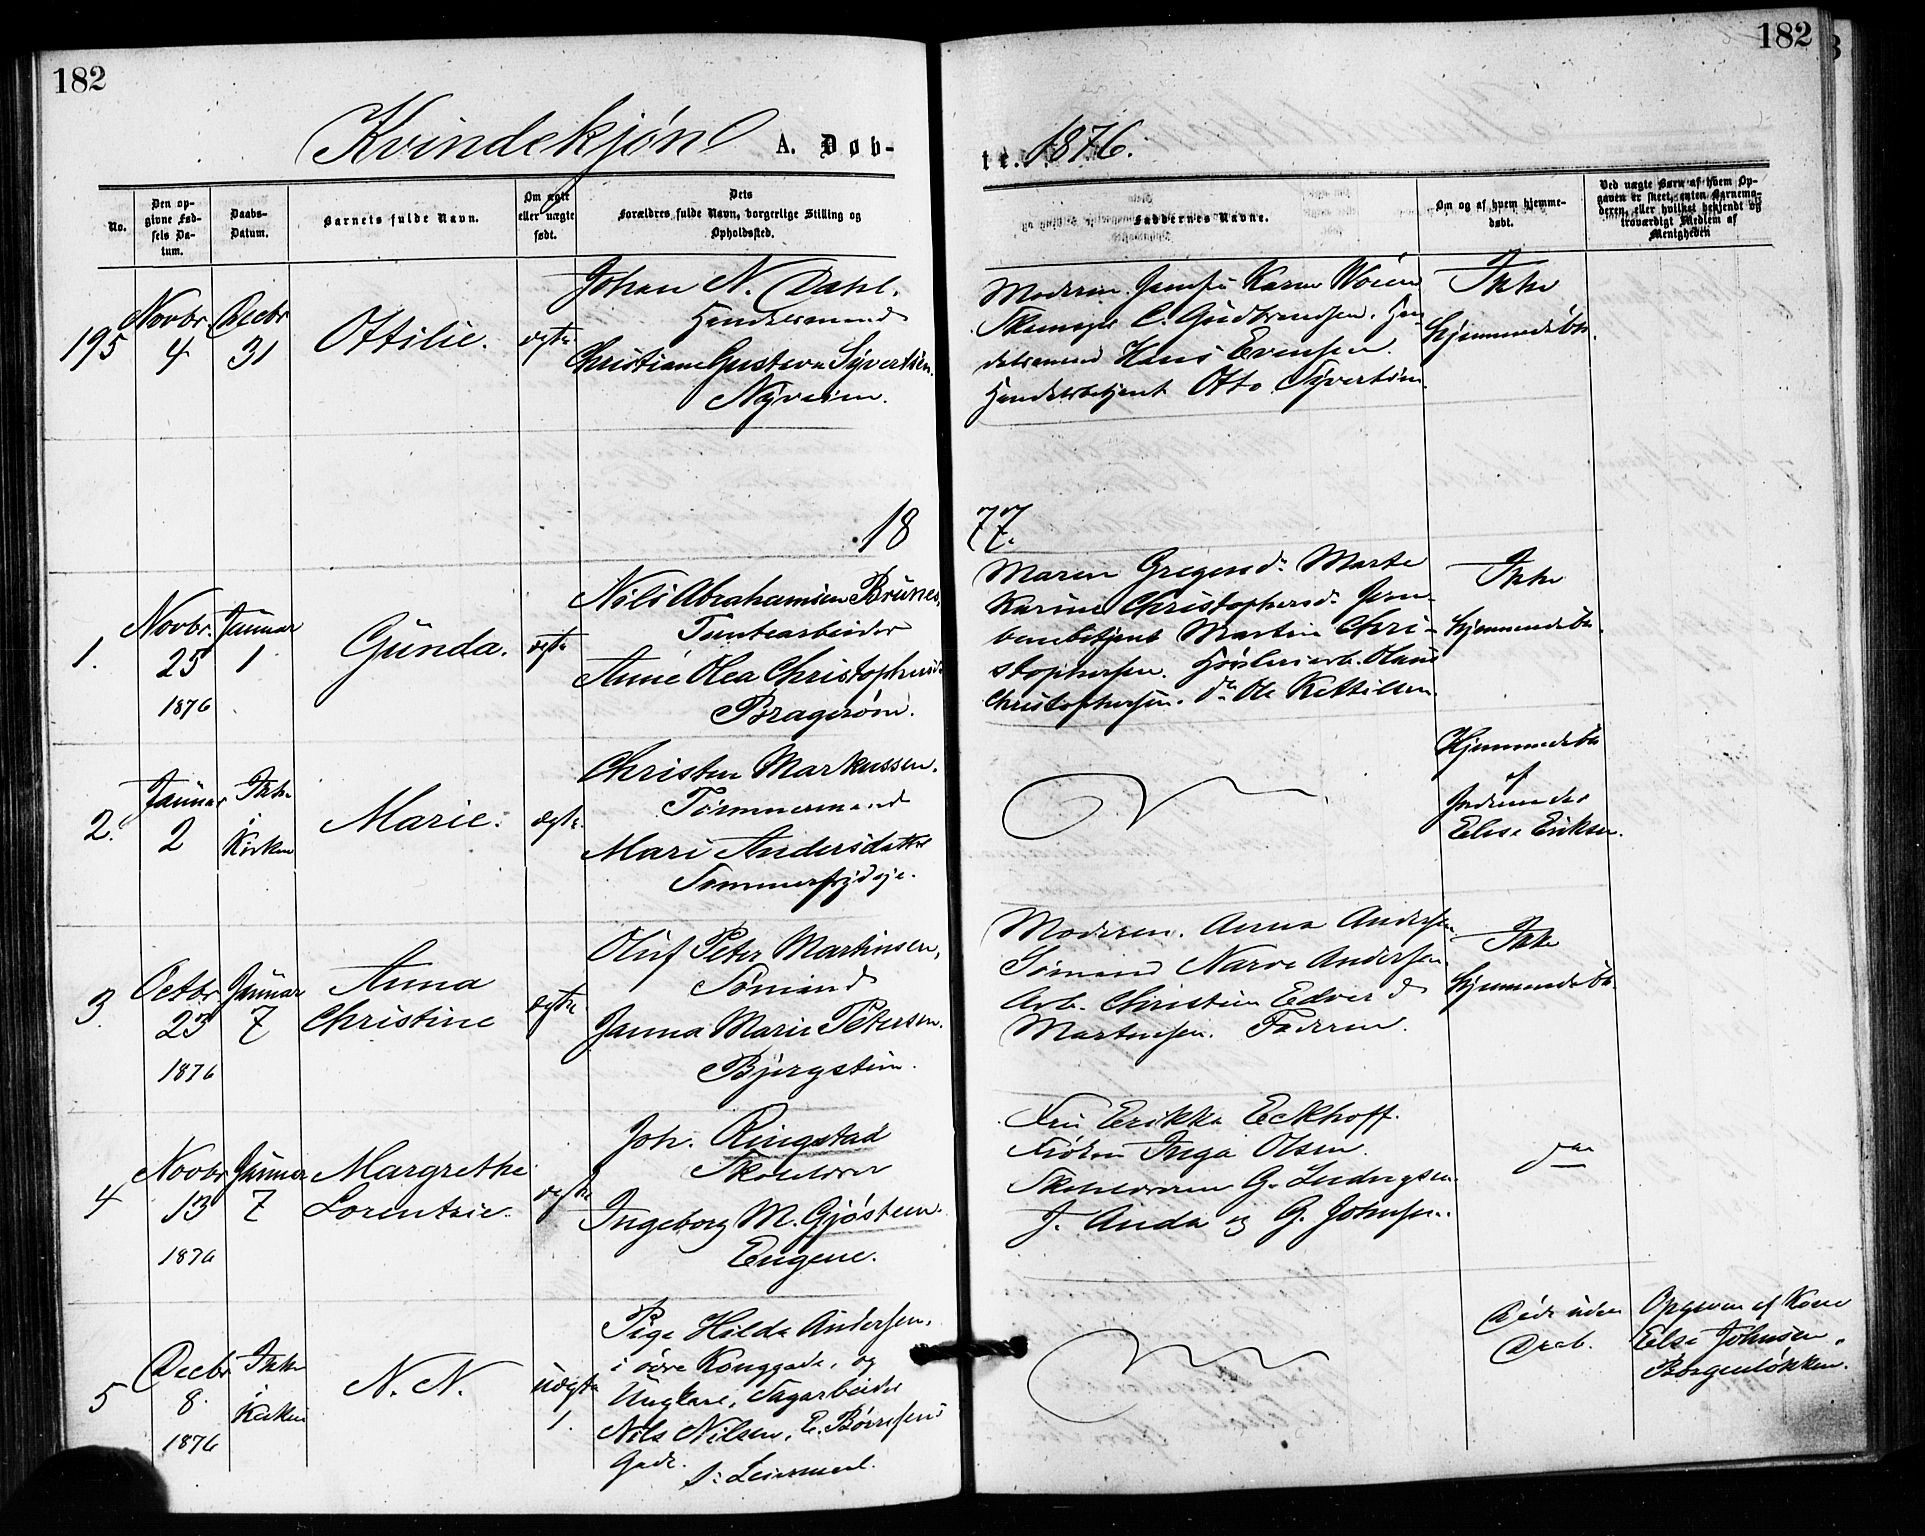 182
182
Kvindekjøn A. Døb-
te. 1876.
No.
Den op-
givne Fød-
sels Da-
tum.
Daabs-
Datum.
Barnets fulde Navn.
Om ægte
eller uægte
født.
Dets
Forældres fulde Navn, borgerlige Stilling og
Opholdssted.
Faddernes Navne.
Om og af hvem hjemme-
døbt.
Ved uægte Barn af hvem Op-
gaven er skeet, enten Barnemo-
deren, eller hvilket bekjendt og
troværdigt Medlem af
Menigheden
195
Novbr.
4
Decbr
31
Ottilie.
ægte
Johan N. Dahl.
Handelsmand
Christiane Gustava Syvertsen.
Nyveien.
Moderen. Jomfru Karen
Skomager C. Gudbrandsen. Han-
delsmand Hans Evensen.
Handelsbetjent Otto Syvertsen.
Ikke
hjemmedøbt.
18
77.
1.
Novbr.
25
1876
Januar
1
Gunda.
ægte
Nils Abrahamsen Brunes,
Tomtearbeider
Anne Olea Christophersd.
Bragerøen.
Maren Gregersd. Marte
Karine Christophersd. Jern-
banebetjent Martin Chri-
stophersen. Høvleriarb. Olaus
Christophersen. do Ole Kettilsen.
Ikke
hjemmedøbt.
2.
Januar
2
Ikke
i
Kirken
Marie.
ægte.
Christen Markussen.
Tømmermand
Mari Andersdatter
Sommerfrydeje.
Hjemmedøbt
af
Jordemoder
Else Eriksen.
3.
Octbr.
23
1876
Januar
7
Anna
Christine
ægte
Oluf Peter Martinsen,
Sømand
Janna Marie Petersen.
Bjergstien.
Moderen. Anna Andersen.
Sømand Narve Andersen.
Arb. Christian Edvard
Martinsen. Faderen.
Ikke
hjemmedøbt.
4
Novbr.
13
1876
Januar
7
Margrethe
Lorentzie.
ægte
Joh. Ringstad
Skolelærer
Ingeborg M. Gjøsteen.
Engene.
Fru Erikka Eckhoff.
Frøken Inga Olsen.
Skolelærerne G. Ludvigsen.
J. Anda og G. Johnsen.
do
5
Decbr
8.
1876
Ikke
i
Kirken
N. N.
uægte
1.
Pige Hilda Andersen,
i øvre Konggade, og
Ungkarl, Sagarbeider
Nils Nilsen, E. Børresens
Gade. 1ste Leiermaal.
Død uden
Daab.
Opgiven af Kone
Else Johnsen,
Borgenløkken.